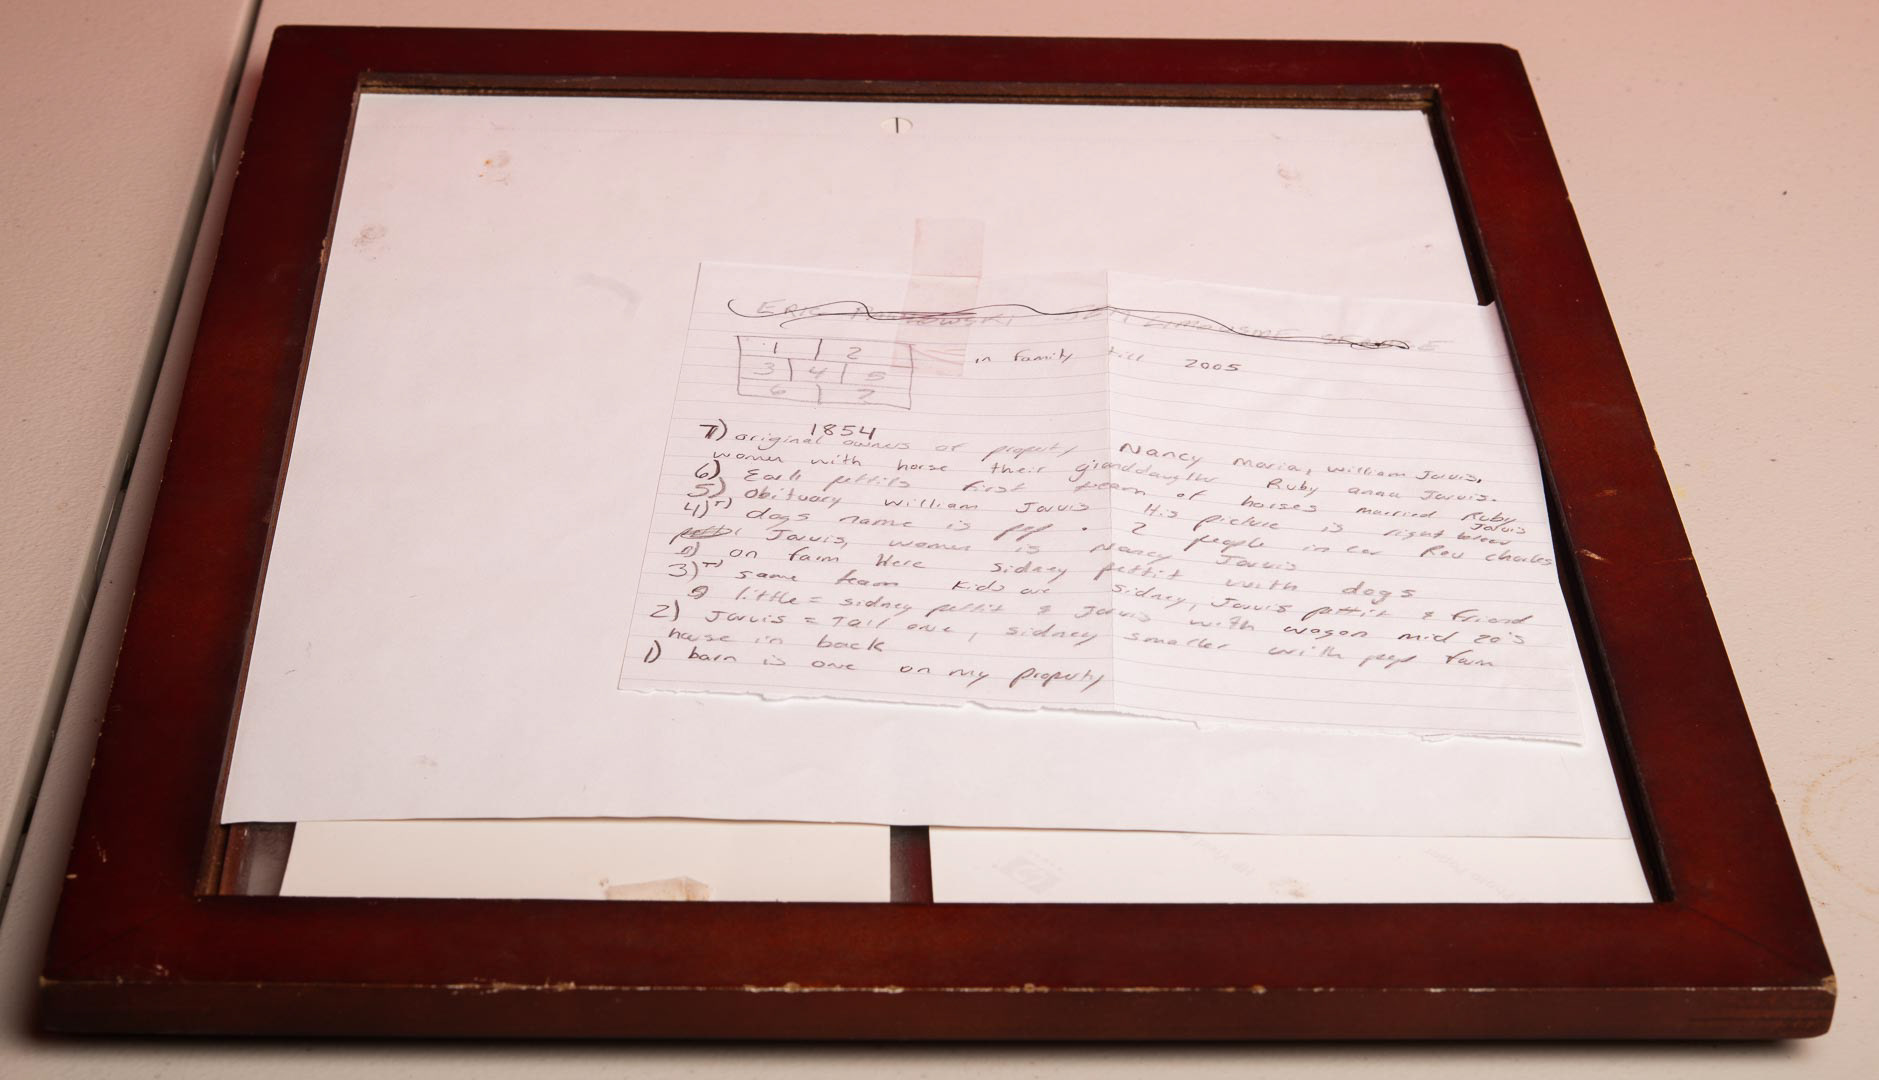 ERIC
1 2
3 4 5
6 7
in family till 2005
1854
7) original owners of property Nancy Maria, William Jarvis,
women with horse their granddaughter Ruby anna Jarvis.
6) Earl pettits first team of horses married Ruby Jarvis
5) Obituary William Jarvis His picture is right below
4) dogs name is pep. 2 people in car Rev Charles
Jarvis, women is Nancy Jarvis
on farm Here Sidney pettit with dogs
3) same team kids are Sidney, Jarvis pettit & friend
little = sidney pettit & Jarvis with wagon mid 20's
2) Jarvis = Tall one, sidney smaller with pep farm
house in back
1) barn is one on my property
HP